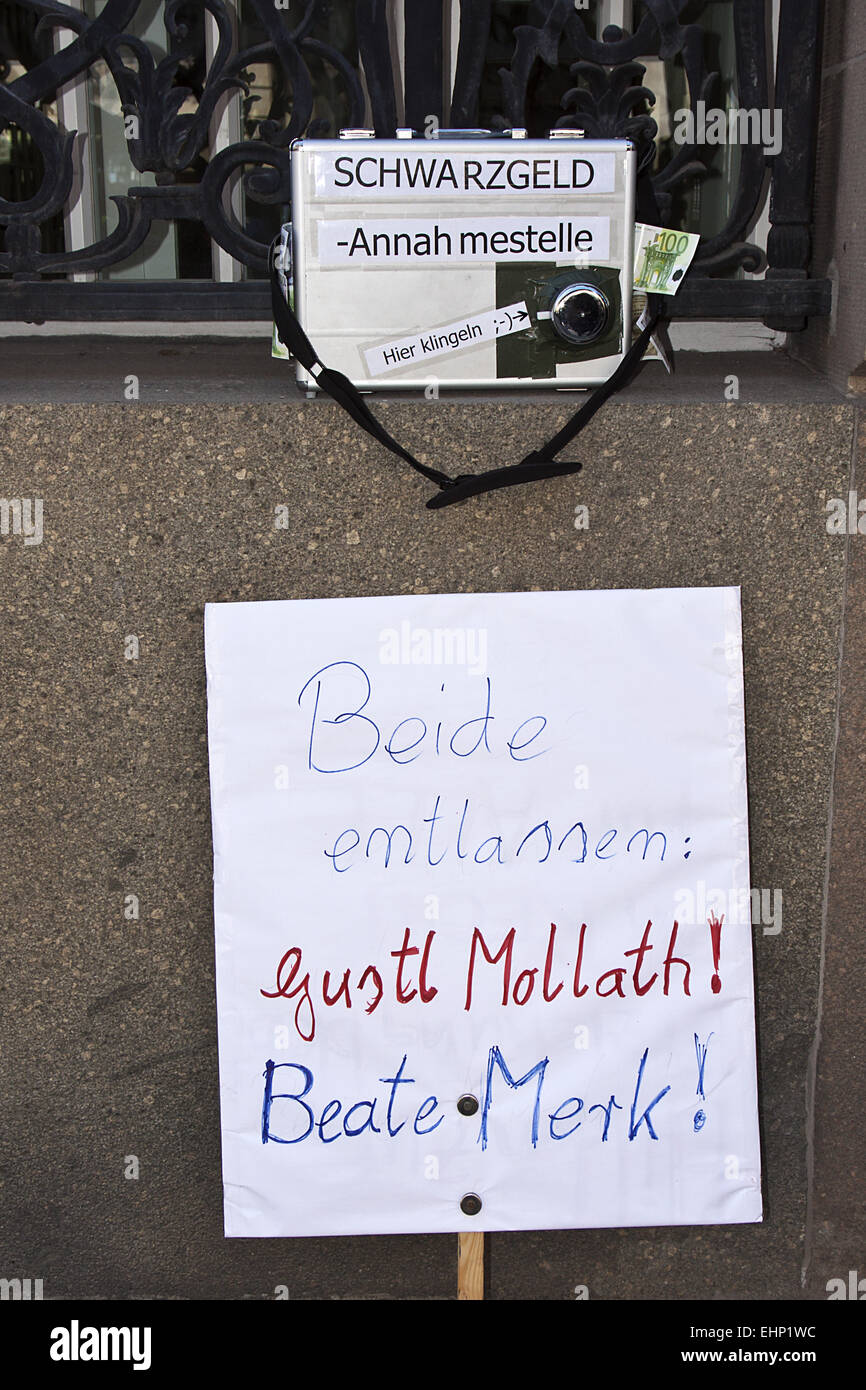 SCHWARZGELD
-Annahmestelle
100
Hier klingeln ;-)→
Beide
entlassen:
Gustl Mollath!
Beate Merk!
alamy
Image ID: EHP1WC
www.alamy.com